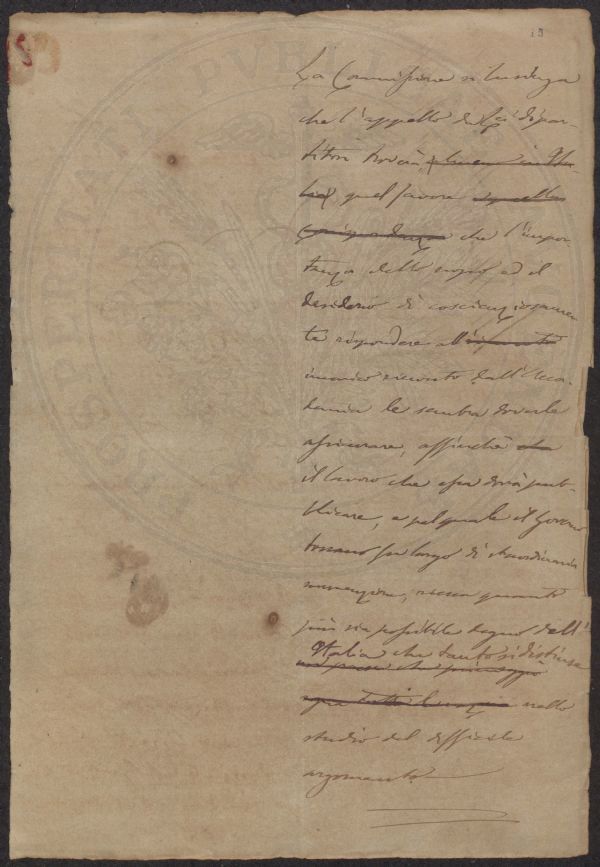 19
La Commissione si lusinga
che l'appello de' suoi dispar-
titori troverà
quel favore
che l'impor-
tanza dello scopo ed il
desiderio di coscienziosamen-
te rispondere all'
incarico ricevuto dall'Acca-
demia le sembra doverle
assicurare, affinchè che
il lavoro che essa dovrà pub-
blicare, e pel quale il Governo
toscano fu largo di straordinaria
sovvenzione, riesca quanto
più sia possibile degno dell'
Italia che tanto si distinse
nello
studio del difficile
argomento.